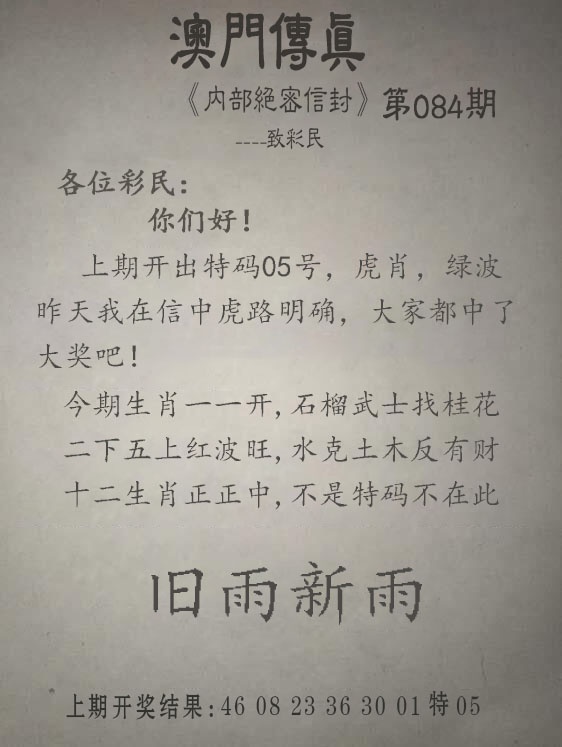 澳門傳眞
《内部絕密信封》第084期
----致彩民
各位彩民：
你们好！
上期开出特码05号，虎肖，绿波
昨天我在信中虎路明确，大家都中了
大奖吧！
今期生肖一一开,石榴武士找桂花
二下五上红波旺,水克土木反有财
十二生肖正正中,不是特码不在此
旧雨新雨
上期开奖结果:46 08 23 36 30 01 特 05